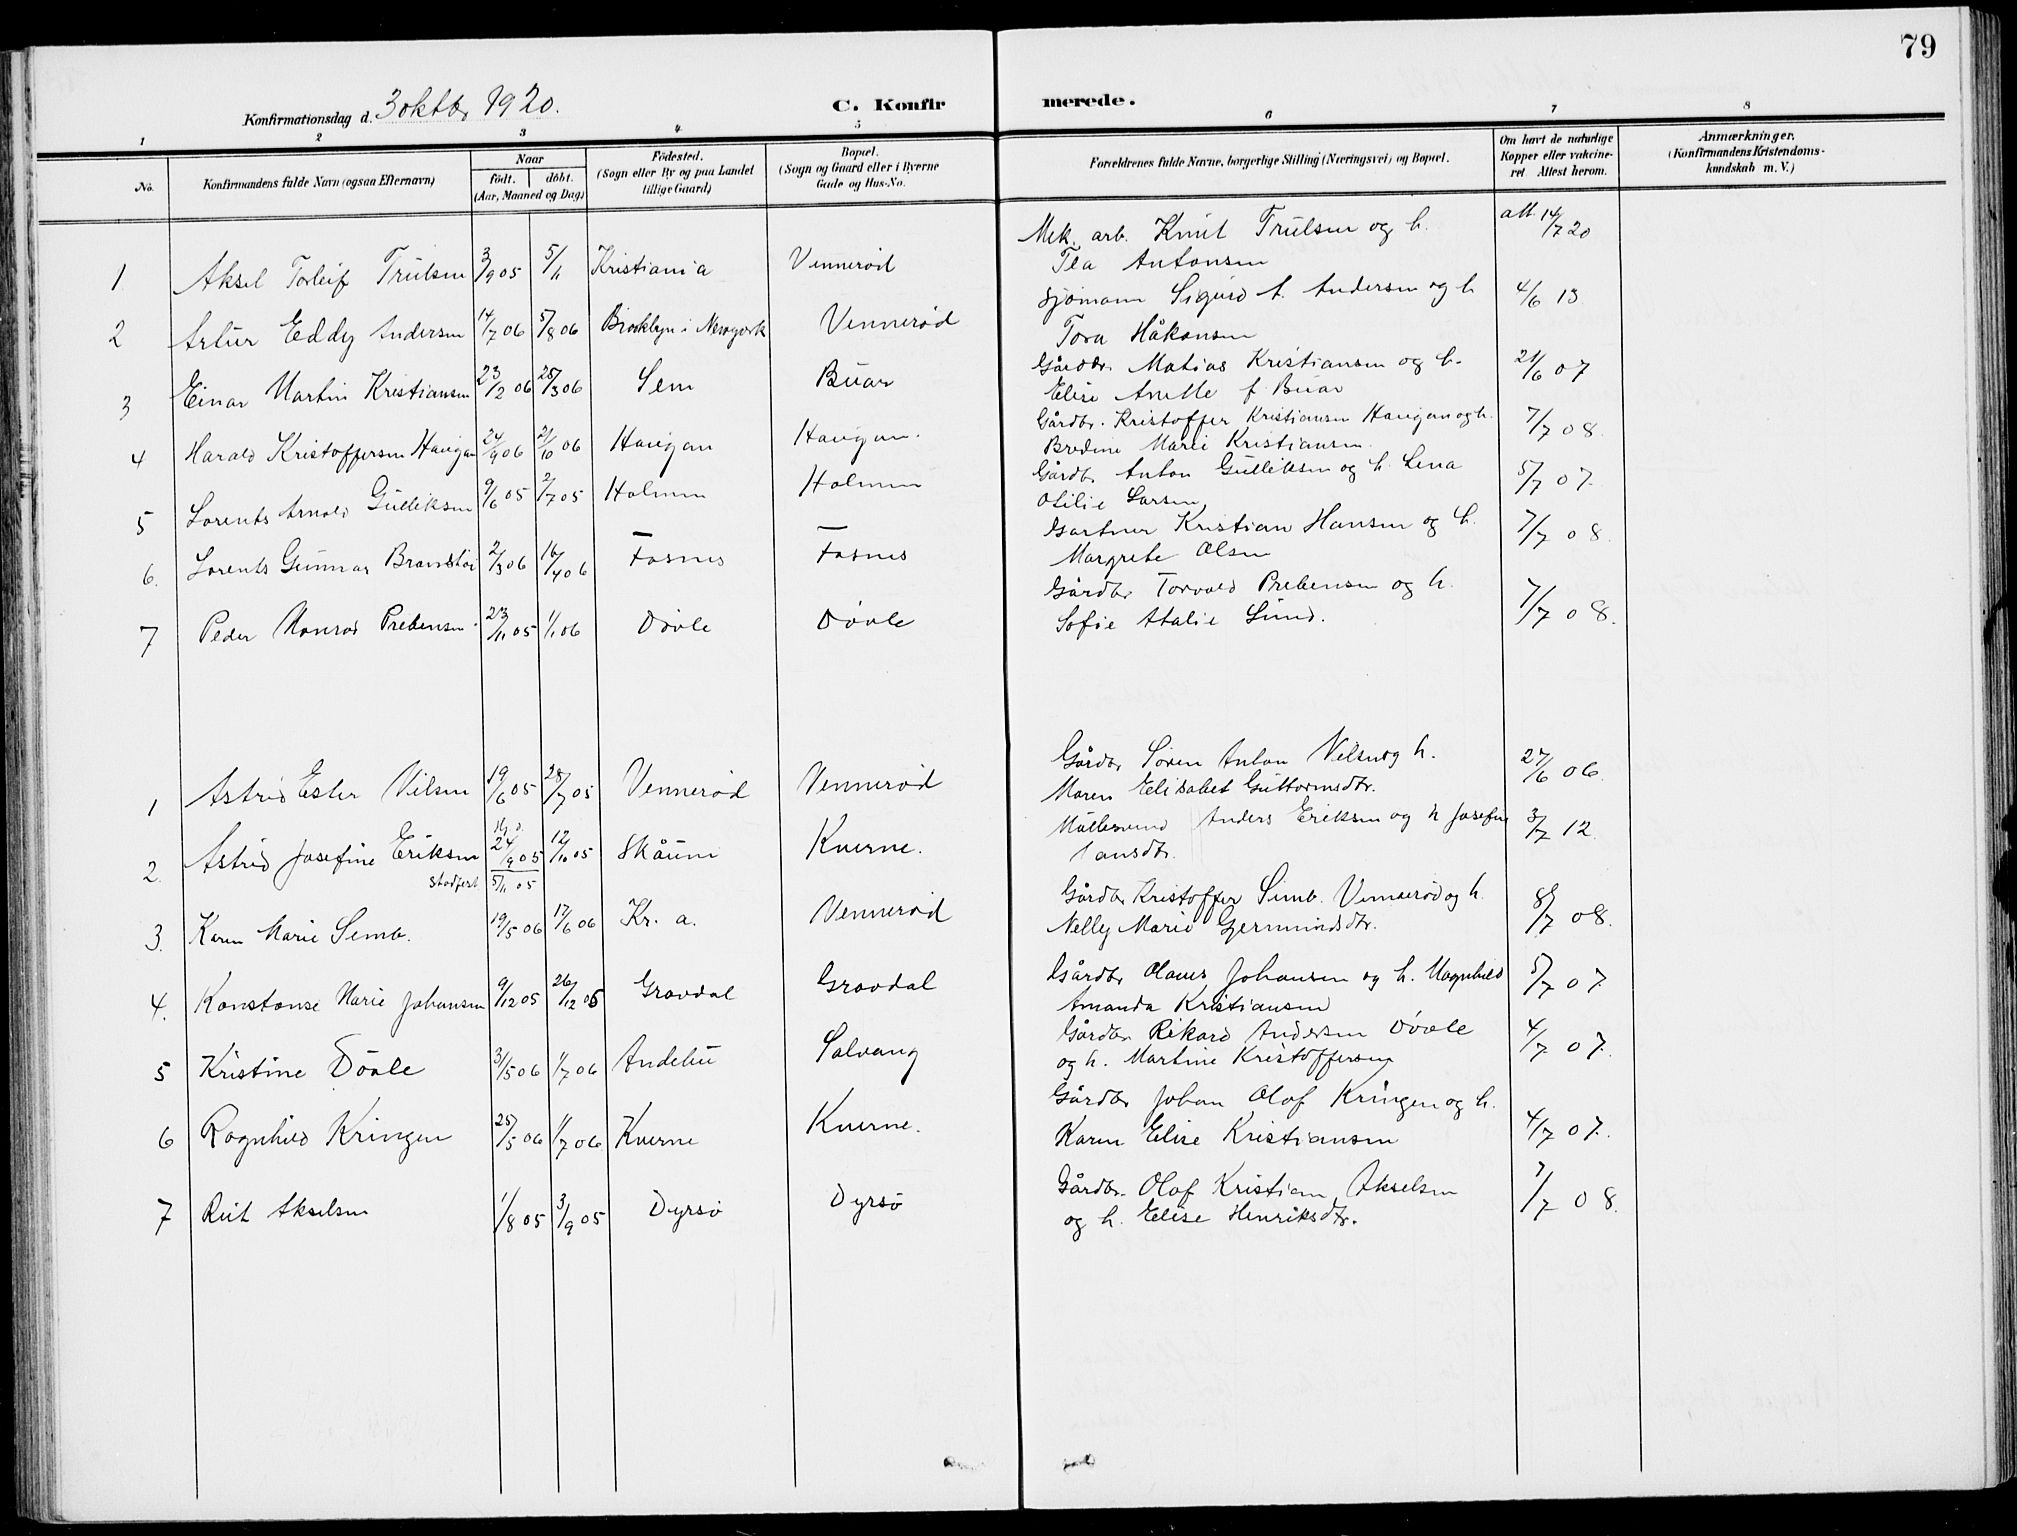 79
Konfirmationsdag d. 3 oktbr 1920.
C. Konfirmerede.
1 2 3 4 5 6 7 8
No.
Konfirmandens fulde Navn (ogsaa Efternavn)
Naar
født. døbt.
(Aar, Maaned og Dag)
Fødested.
(Sogn eller By og paa Landet
tillige Gaard)
Bopæl.
(Sogn og Gaard eller i Byerne
Gade og Hus-No.
Forældrenes fulde Navne, borgerlige Stilling (Næringsvei) og Bopæl.
Om havt de naturlige
Kopper eller vakcine-
ret. Attest herom.
Anmærkninger.
(Konfirmandens Kristendoms-
kundskab m. V.)
1 Aksel Torleif Trulsen 3/9 05 5/11 Kristiania Vennerød Mek. arb. Knut Trulsen og h. att. 14/7 20
Tea Antonsen
2 Artur Eddy Andersen 14/7 06 5/8 06 Brooklyn i Newyork Vennerød Sjømann Sigurd A. Andersen og h 4/6 13
Tora Håkonsen
3 Einar Martin Kristiansen 23/2 06 25/3 06 Sem Buar Gårdbr. Matias Kristiansen og h. 21/6 07
Elise Anette f. Buar
4 Harald Kristoffersen Haugan 24/9 06 21/10 06 Haugan Haugan. Gårdbr. Kristoffer Kristiansen Haugan og h. 7/7 08.
Bredine Marie Kristiansen.
5 Lorents Arnold Gulliksen 9/6 05 2/7 05 Holmen Holmen Gårdb. Anton Gulliksen og h. Lena 5/7 07.
Otilie Larsen
6. Lorents Gunnar 2/3 06 16/4 06 Fosnes Fosnes Gartner Kristian Hansen og h. 7/7 08.
Margrete Olsen
7 Peder Konrad Prebensen. 23/11 05 1/1 06 Døvle Døvle Gårdbr Torvald Prebensen og h. 7/7 08.
Sofie Atalie Lund.
1 Astrid Ester Nilsen 19/6 05 28/7 05 Vennerød Vennerød Gårdbr Søren Anton Nilsen og h. 27/6 06.
Maren Elisabet Guttormsdtr.
2. Astrid Josefine Eriksen 24/9 05 12/10 05 Skåum Kverne. Anders Eriksen og h Josefine 3/7 12.
stadfest 5/11 05
3. Karen Marie Semb. 19/5 06 17/6 06 Kr. a. Vennerød Gårdbr Kristoffer Semb. Vennerød og h. 8/7 08.
Nelly Marie Gjermundsdtr.
4. Konstanse Marie Johansen 9/12 05 26/12 05 Gravdal Gravdal Gårdbr Olaves Johansen og h. Magnhild 5/7 07.
Amanda Kristiansen
5 Kristine Døvle 3/5 06 1/7 06 Andebu Solvang Gårdbr. Rikard Andersen Døvle 4/7 07.
og h. Martine Kristoffersen
6 Ragnhild Kringen 25/5 06 1/7 06 Kverne Kverne. Gårdbr Johan Olaf Kringen og h. 4/7 07.
Karen Elise Kristiansen
7 Rut Akselsen 1/8 05 3/9 05 Dyrsø Dyrsø Gårdbr. Olaf Kristian Akselsen 7/7 08.
og h. Elise Henriksdtr.